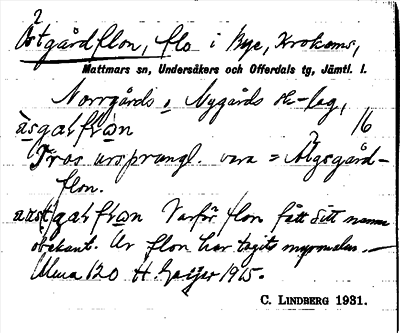 2
Östgårdflon, flo i Bye, Krokoms,
Mattmars sn, Undersåkers och Offerdals tg, Jämtl. l.
Norrgårds, Nygårds sk-lag,
àsgaḷfrɷn 16
Tros ursprungl. vara = Ägsgård-
flon.
Varför flon fått ditt namn
obekant. Ur flon har tagits myrmalm.
Uma 120 H. Geijer 1915.
C. LINDBERG 1931.